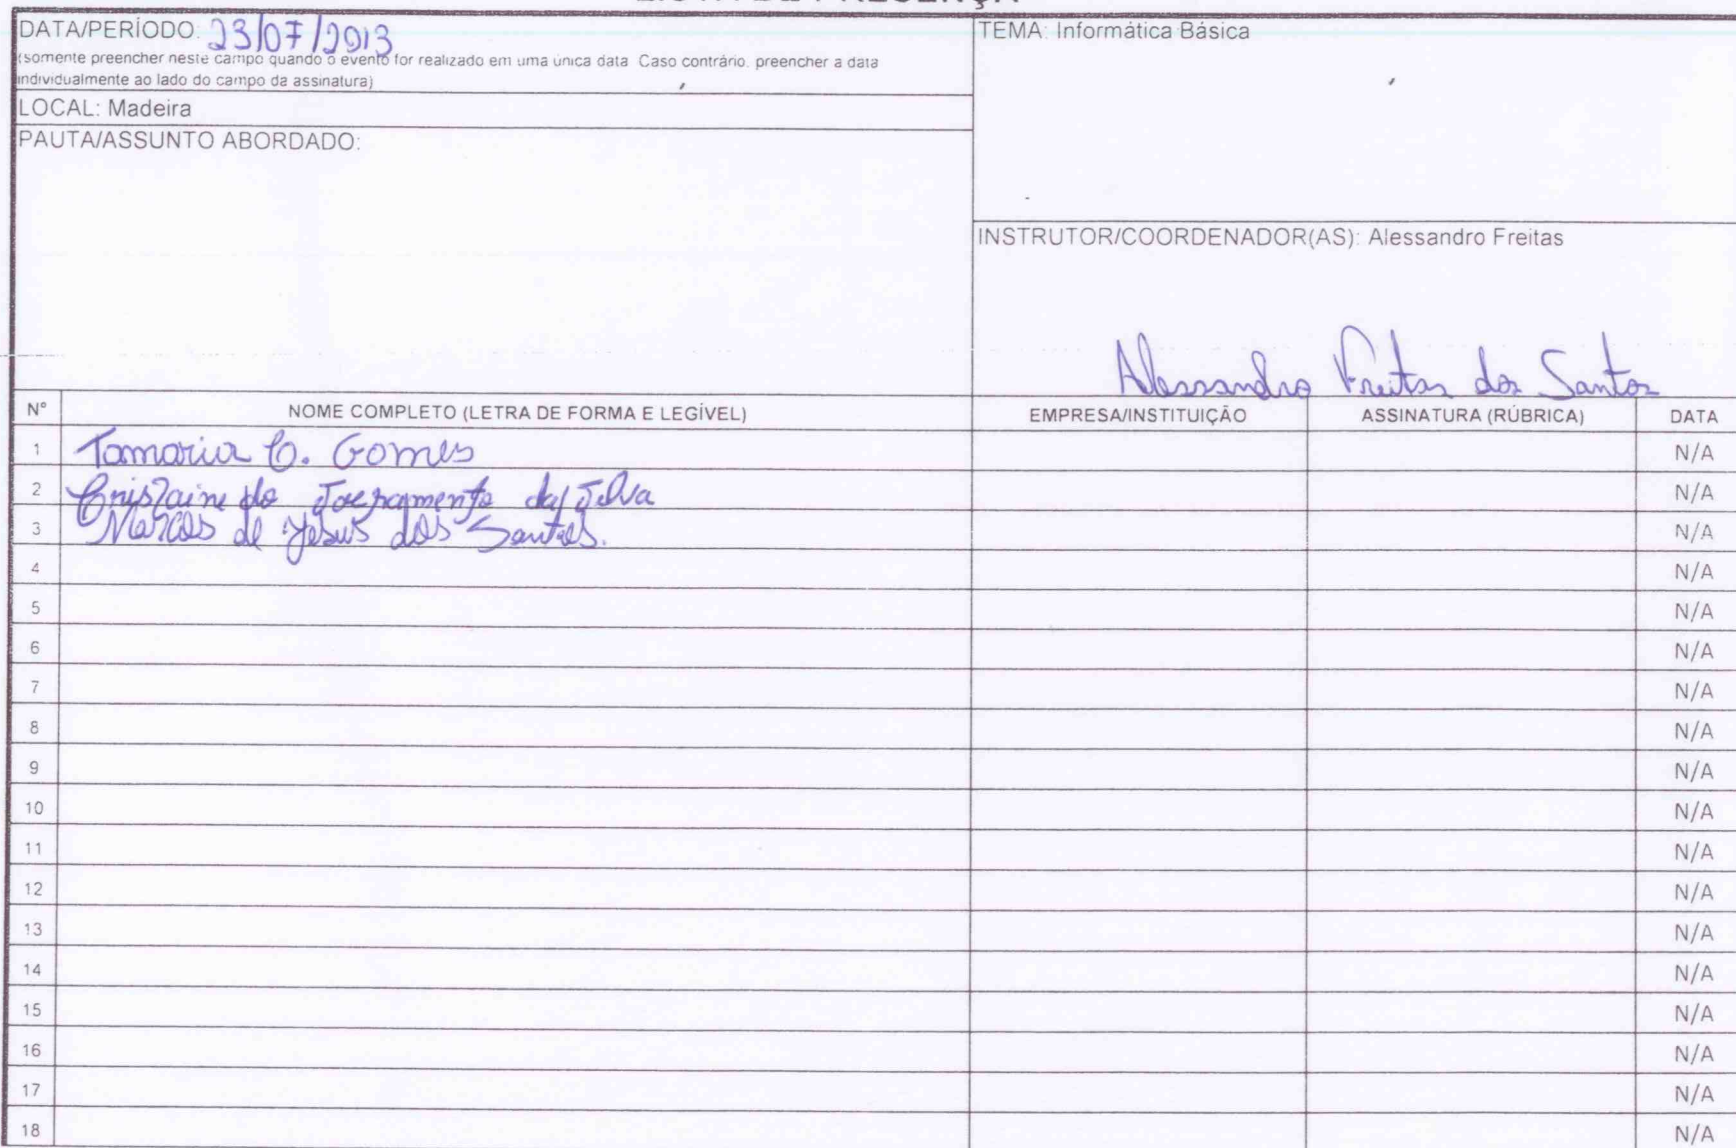 DATA/PERÍODO: 23/07/2013
(somente preencher neste campo quando o evento for realizado em uma única data. Caso contrário, preencher a data
individualmente ao lado do campo da assinatura)
LOCAL: Madeira
PAUTA/ASSUNTO ABORDADO:
TEMA: Informática Básica
INSTRUTOR/COORDENADOR(AS): Alessandro Freitas
Alessandro Freitas dos Santos
N° NOME COMPLETO (LETRA DE FORMA E LEGÍVEL) EMPRESA/INSTITUIÇÃO ASSINATURA (RÚBRICA) DATA
1 Gomes N/A
2 do da Silva N/A
3 Marcos de Jesus dos Santos. N/A
4 N/A
5 N/A
6 N/A
7 N/A
8 N/A
9 N/A
10 N/A
11 N/A
12 N/A
13 N/A
14 N/A
15 N/A
16 N/A
17 N/A
18 N/A